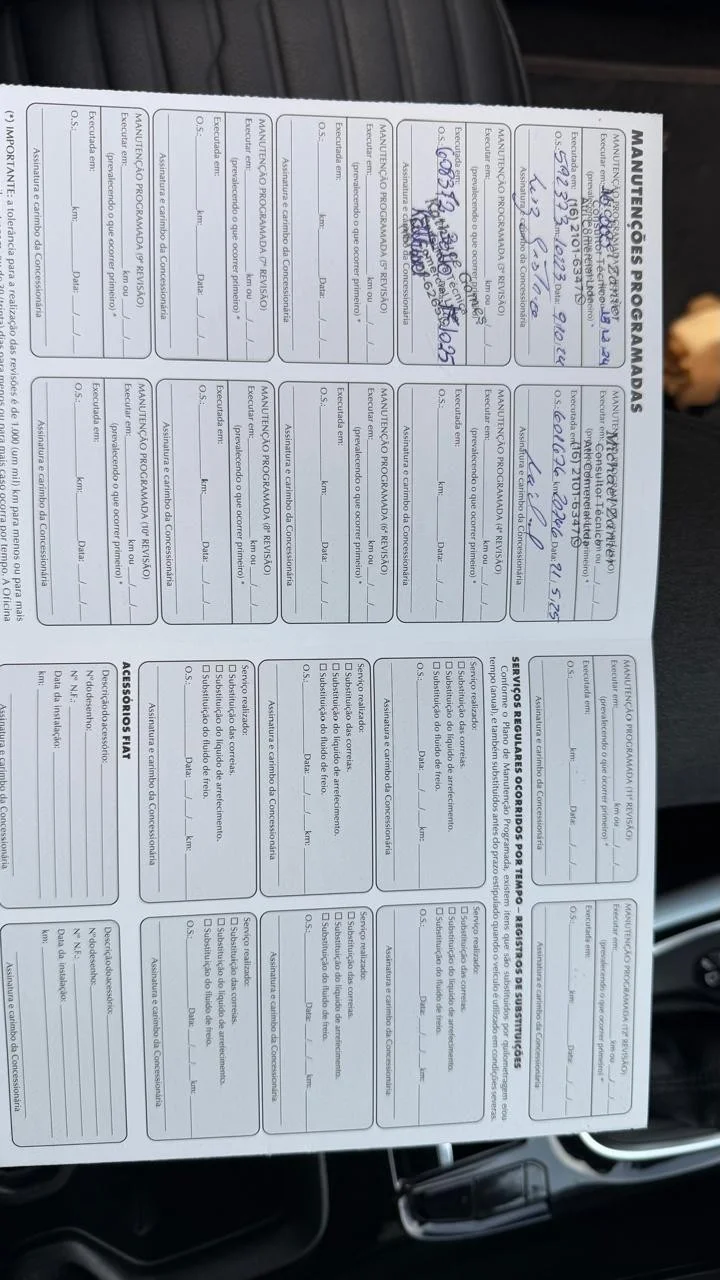 MANUTENÇÕES PROGRAMADAS
MANUTENÇÃO PROGRAMADA
Executar em:
Consultor Técnico
18 12 24
(prevalecendo
Atri Comercial Ltda
Executada em: (16) 2101-6347
O.S.: 592373 km: 10223 Data: 9/10/24
Assinatura e carimbo da Concessionária
Michael Zanier
Executar em: Consultor Técnico km ou __/__/__
Atri Comercial Ltda
Executada em: (16) 2101-6347
O.S.: 601676 km: 20746 Data: 21.5.25
Assinatura e carimbo da Concessionária
MANUTENÇÃO PROGRAMADA (3ª REVISÃO)
Executar em: km ou __/__/__
(prevalecendo o que ocorrer primeiro) *
Executada em:
O.S.: 608372
Assinatura e carimbo da Concessionária
MANUTENÇÃO PROGRAMADA (4ª REVISÃO)
Executar em: km ou __/__/__
(prevalecendo o que ocorrer primeiro) *
Executada em:
O.S.: km: Data: __/__/__
Assinatura e carimbo da Concessionária
MANUTENÇÃO PROGRAMADA (5ª REVISÃO)
Executar em: km ou __/__/__
(prevalecendo o que ocorrer primeiro) *
Executada em:
O.S.: km: Data: __/__/__
Assinatura e carimbo da Concessionária
MANUTENÇÃO PROGRAMADA (6ª REVISÃO)
Executar em: km ou __/__/__
(prevalecendo o que ocorrer primeiro) *
Executada em:
O.S.: km: Data: __/__/__
Assinatura e carimbo da Concessionária
MANUTENÇÃO PROGRAMADA (7ª REVISÃO)
Executar em: km ou __/__/__
(prevalecendo o que ocorrer primeiro) *
Executada em:
O.S.: km: Data: __/__/__
Assinatura e carimbo da Concessionária
MANUTENÇÃO PROGRAMADA (8ª REVISÃO)
Executar em: km ou __/__/__
(prevalecendo o que ocorrer primeiro) *
Executada em:
O.S.: km: Data: __/__/__
Assinatura e carimbo da Concessionária
MANUTENÇÃO PROGRAMADA (9ª REVISÃO)
Executar em: km ou __/__/__
(prevalecendo o que ocorrer primeiro) *
Executada em:
O.S.: km: Data: __/__/__
Assinatura e carimbo da Concessionária
MANUTENÇÃO PROGRAMADA (10ª REVISÃO)
Executar em: km ou __/__/__
(prevalecendo o que ocorrer primeiro) *
Executada em:
O.S.: km: Data: __/__/__
Assinatura e carimbo da Concessionária
(*) IMPORTANTE: a tolerância para a realização das revisões é de 1.000 (um mil) km para menos ou para mais
30 (trinta) dias para menos ou para mais caso ocorra por tempo. A Oficina
MANUTENÇÃO PROGRAMADA (11ª REVISÃO)
Executar em: km ou __/__/__
(prevalecendo o que ocorrer primeiro) *
Executada em:
O.S.: km: Data: __/__/__
Assinatura e carimbo da Concessionária
MANUTENÇÃO PROGRAMADA (12ª REVISÃO)
Executar em: km ou __/__/__
(prevalecendo o que ocorrer primeiro) *
Executada em:
O.S.: km: Data: __/__/__
Assinatura e carimbo da Concessionária
SERVIÇOS REGULARES OCORRIDOS POR TEMPO – REGISTROS DE SUBSTITUIÇÕES
Conforme o Plano de Manutenção Programada, existem itens que são substituídos por quilometragem e/ou
tempo (anual), e também substituídos antes do prazo estipulado quando o veículo é utilizado em condições severas.
Serviço realizado:
☐ Substituição das correias.
☐ Substituição do líquido de arrefecimento.
☐ Substituição do fluido de freio.
O.S.: Data: __/__/__ km:
Assinatura e carimbo da Concessionária
Serviço realizado:
☐ Substituição das correias.
☐ Substituição do líquido de arrefecimento.
☐ Substituição do fluido de freio.
O.S.: Data: __/__/__ km:
Assinatura e carimbo da Concessionária
Serviço realizado:
☐ Substituição das correias.
☐ Substituição do líquido de arrefecimento.
☐ Substituição do fluido de freio.
O.S.: Data: __/__/__ km:
Assinatura e carimbo da Concessionária
Serviço realizado:
☐ Substituição das correias.
☐ Substituição do líquido de arrefecimento.
☐ Substituição do fluido de freio.
O.S.: Data: __/__/__ km:
Assinatura e carimbo da Concessionária
Serviço realizado:
☐ Substituição das correias.
☐ Substituição do líquido de arrefecimento.
☐ Substituição do fluido de freio.
O.S.: Data: __/__/__ km:
Assinatura e carimbo da Concessionária
Serviço realizado:
☐ Substituição das correias.
☐ Substituição do líquido de arrefecimento.
☐ Substituição do fluido de freio.
O.S.: Data: __/__/__ km:
Assinatura e carimbo da Concessionária
ACESSÓRIOS FIAT
Descrição do acessório:
Nº do desenho:
Nº N.F.:
Data da instalação:
km:
Assinatura e carimbo da Concessionária
Descrição do acessório:
Nº do desenho:
Nº N.F.:
Data da instalação:
km:
Assinatura e carimbo da Concessionária